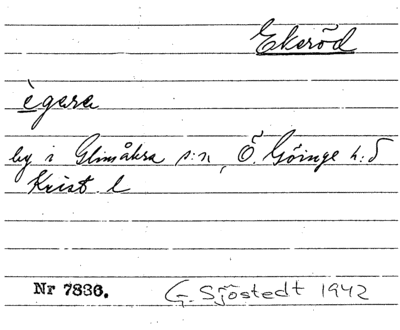 Ekeröd
ègara
by i Glimåkra s:n, Ö. Göinge h:d
Krist. l
Nr 7836. G. Sjöstedt 1942